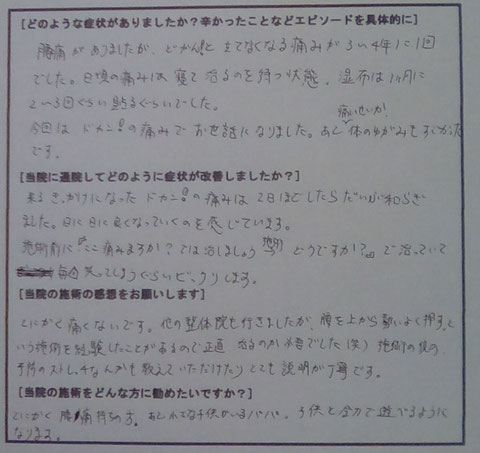 [どのような症状がありましたか？辛かったことなどエピソードを具体的に]
腰痛がありましたが、どかん!と立てなくなる痛みが3〜4年に1回
でした。日頃の痛みは寝て治るのを待つ状態、湿布は1ヶ月に
2〜3回ぐらい貼るぐらいでした。
痛いせいか、
今回はドカン!の痛みでお世話になりました。あと体のゆがみもすごかった
です。
[当院に通院してどのように症状が改善しましたか？]
来るきっかけになったドカン!の痛みは2日ほどしたらだいぶ和らぎ
ました。日に日に良くなっていくのを感じています。
施術前に「ここ痛みますか？では治しましょう」どうですか？」で治っていて
毎回笑ってしまうぐらいビックリします。
[当院の施術の感想をお願いします]
とにかく痛くないです。他の整体院も行きましたが、腰を上から勢いよく押す、と
いう施術を経験したことがあるので正直治るのか不安でした(笑) 施術の後の、
予防のストレッチなんかも教えていただけたりとても説明が丁寧です。
[当院の施術をどんな方に勧めたいですか？]
とにかく腰痛持ちの方。あと小さな子供がいるパパ。子供と全力で遊べるように
なります。